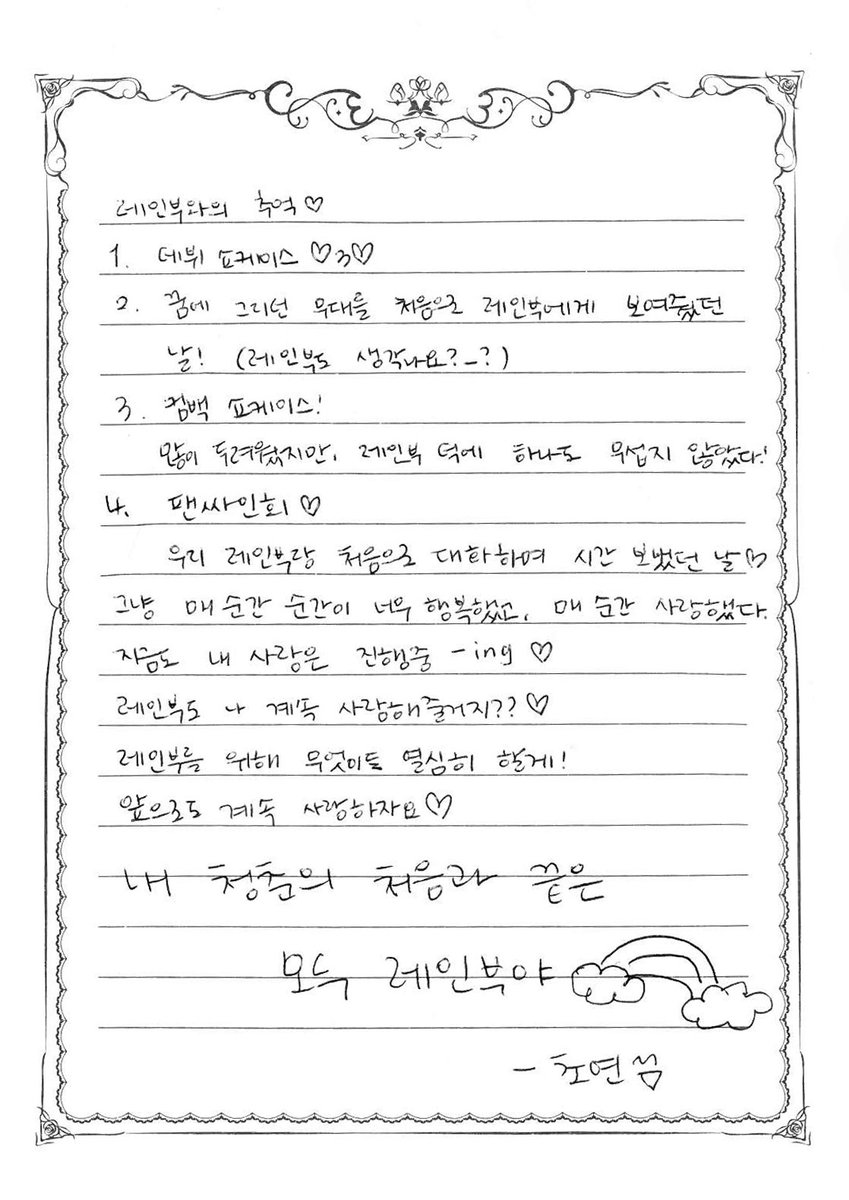 레인부와의 추억♡
1. 데뷔 쇼케이스 ♡3♡
2. 꿈에 그리던 무대를 처음으로 레인부에게 보여줬던
날! (레인부도 생각나요?_?)
3. 컴백 쇼케이스!
많이 두려웠지만, 레인부 덕에 하나도 무섭지 않았다!
4. 팬싸인회♡
우리 레인부랑 처음으로 대화하며 시간 보냈던 날♡
그냥 매 순간 순간이 너무 행복했고, 매 순간 사랑했다.
지금도 내 사랑은 진행중 -ing ♡
레인부도 나 계속 사랑해줄거지??♡
레인부를 위해 무엇이든 열심히 할게!
앞으로도 계속 사랑하자요♡
내 청춘의 처음과 끝은
모두 레인부야
- 초연